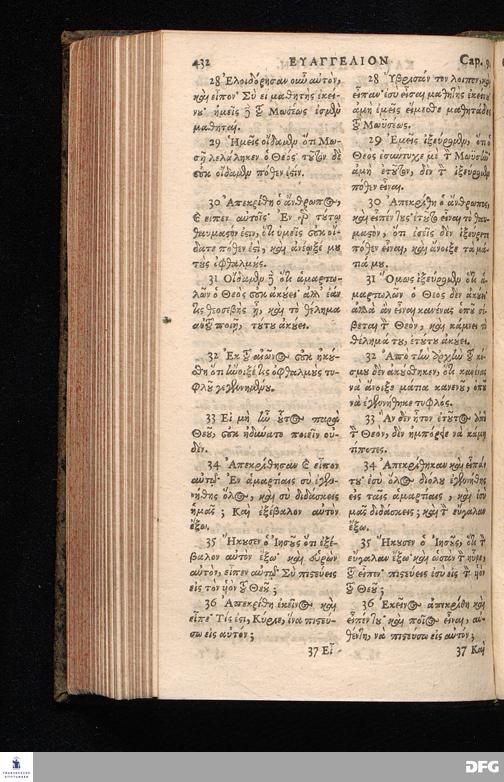 432 ΕΥΑΓΓΕΛΙΟΝ Cap. 9.
28 Ἐλοιδόρησαν οὖν αὐτὸν,
καὶ εἶπον· Σὺ εἶ μαθητὴς ἐκεί-
νου· ἡμεῖς δὲ τοῦ Μωσέως ἐσμὲν
μαθηταί.
29 Ἡμεῖς οἴδαμεν ὅτι Μω-
σῇ λελάληκεν ὁ Θεός· τοῦτον δὲ
οὐκ οἴδαμεν πόθεν ἐστίν.
30 Ἀπεκρίθη ὁ ἄνθρωπος,
καὶ εἶπεν αὐτοῖς· Ἐν γὰρ τούτῳ
θαυμαστόν ἐστιν, ὅτι ὑμεῖς οὐκ οἴ-
δατε πόθεν ἐστὶ, καὶ ἀνέῳξέ μου
τοὺς ὀφθαλμούς.
31 Οἴδαμεν δὲ ὅτι ἁμαρτω-
λῶν ὁ Θεὸς οὐκ ἀκούει· ἀλλ' ἐάν
τις θεοσεβὴς ᾖ, καὶ τὸ θέλημα
αὐτοῦ ποιῇ, τούτου ἀκούει.
32 Ἐκ τοῦ αἰῶνος οὐκ ἠκού-
σθη ὅτι ἤνοιξέ τις ὀφθαλμοὺς τυ-
φλοῦ γεγεννημένου.
33 Εἰ μὴ ἦν οὗτος παρὰ
Θεοῦ, οὐκ ἠδύνατο ποιεῖν οὐ-
δέν.
34 Ἀπεκρίθησαν καὶ εἶπον
αὐτῷ· Ἐν ἁμαρτίαις σὺ ἐγεν-
νήθης ὅλος, καὶ σὺ διδάσκεις
ἡμᾶς; Καὶ ἐξέβαλον αὐτὸν
ἔξω.
35 Ἤκουσεν ὁ Ἰησοῦς ὅτι ἐξέ-
βαλον αὐτὸν ἔξω· καὶ εὑρὼν
αὐτὸν, εἶπεν αὐτῷ· Σὺ πιστεύεις
εἰς τὸν υἱὸν τοῦ Θεοῦ;
36 Ἀπεκρίθη ἐκεῖνος καὶ
εἶπε· Τίς ἐστι, Κύριε, ἵνα πιστεύ-
σω εἰς αὐτόν;
37 Εἶ-
28 Ὕβρισάν τον λοιπὸν, καὶ
εἶπαν· ἐσὺ εἶσαι μαθητὴς ἐκείνου
ἀμὴ ἐμεῖς εἴμεσθε μαθητάδες
τοῦ Μωϋσέως.
29 Ἐμεῖς ἐξεύρομεν, ὅτι ὁ
Θεὸς ἐσυντυχε μὲ τὸν Μωϋσῆν
ἀμὴ ἐτοῦτον, δὲν τὸν ἐξεύρομεν
πόθεν εἶναι.
30 Ἀπεκρίθη ὁ ἄνθρωπος,
καὶ εἶπέν τους· εἰς ἐτοῦτο εἶναι τὸ θαυ-
μαστὸν, ὅτι ἐσεῖς δὲν ἐξεύρετε
πόθεν εἶναι, καὶ ἄνοιξε τὰ μά-
τιά μου.
31 Ὅμως ἐξεύρομεν ὅτι ἁ-
μαρτωλῶν ὁ Θεὸς δὲν ἀκούει
ἀλλὰ ἂν εἶναι κανένας ὁποῦ σέ-
βεται τὸν Θεὸν, καὶ κάμνει τὸ
θέλημά του, ἐτούτου ἀκούει.
32 Ἀπὸ τὴν ἀρχὴν τοῦ κό-
σμου δὲν ἀκούσθηκεν, ὅτι κανένας
νὰ ἄνοιξε μάτια κανενοῦ, ὁποῦ
νὰ ἐγεννήθηκε τυφλός.
33 Ἂν δὲν ἦτον ἐτοῦτος ἀπὸ
τὸν Θεὸν, δὲν ἠμπόρηε νὰ κάμῃ
τίποτες.
34 Ἀπεκρίθηκαν καὶ εἶπάν
του· ἐσὺ ὅλος διόλου ἐγεννήθης
εἰς ταῖς ἁμαρτίαις, καὶ ἐσὺ
μᾶς διδάσκεις; καὶ τὸν εὔγαλαν
ἔξω.
35 Ἤκουσεν ὁ Ἰησοῦς, ὅτι τὸν
εὔγαλαν ἔξω· καὶ ὡσὰν τὸν ηὗρε,
τοῦ εἶπεν· πιστεύεις ἐσὺ εἰς τὸν υἱὸν
τοῦ Θεοῦ;
36 Ἐκεῖνος ἀπεκρίθη καὶ
εἶπέν του· καὶ ποῖος εἶναι, αὐ-
θέντη, νὰ πιστεύσω εἰς αὐτόν;
37 Καὶ
FRANCKESCHE
STIFTUNGEN
DFG